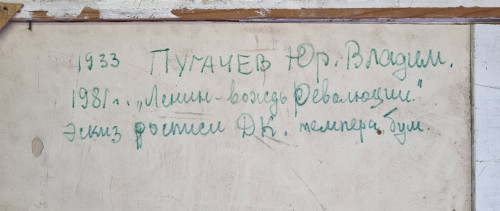 1933 ПУГАЧЕВ Юр. Владим.
1981 г. „Ленин-вождь Революции."
Эскиз росписи Д.К. темпера, бум.